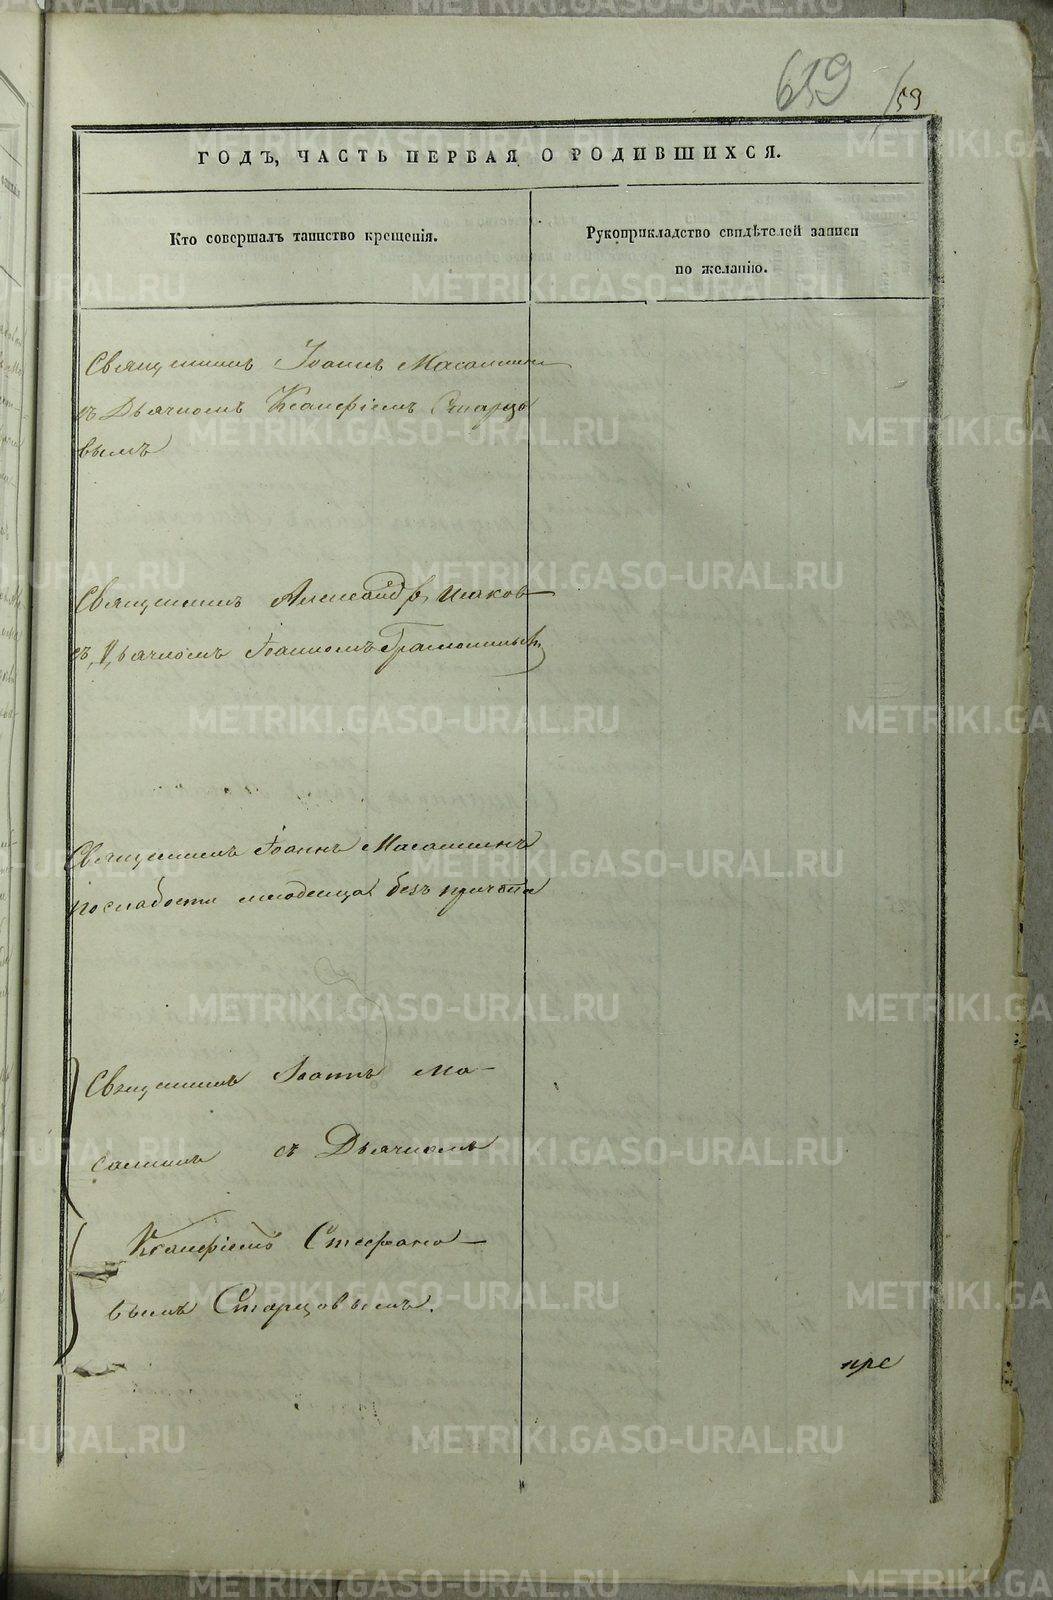 659
59
ГОДЪ, ЧАСТЬ ПЕРВАЯ О РОДИВШИХСЯ.
Кто совершалъ таинство крещенія.
Рукоприкладство свидѣтелей записи
по желанію.
Священникъ Іоаннъ Масалкин
съ Дьячкомъ Ксанфіемъ Старцо
вымъ
Священникъ Александр Исаков
съ Дьячкомъ Іоанномъ
Священникъ Іоаннъ
по слабости младенца безъ причта
Священникъ Іоаннъ Ма-
съ Дьячкомъ
Ксанфіемъ Стефано-
вымъ Старцовымъ.
пре
METRIKI.GASO-URAL.RU